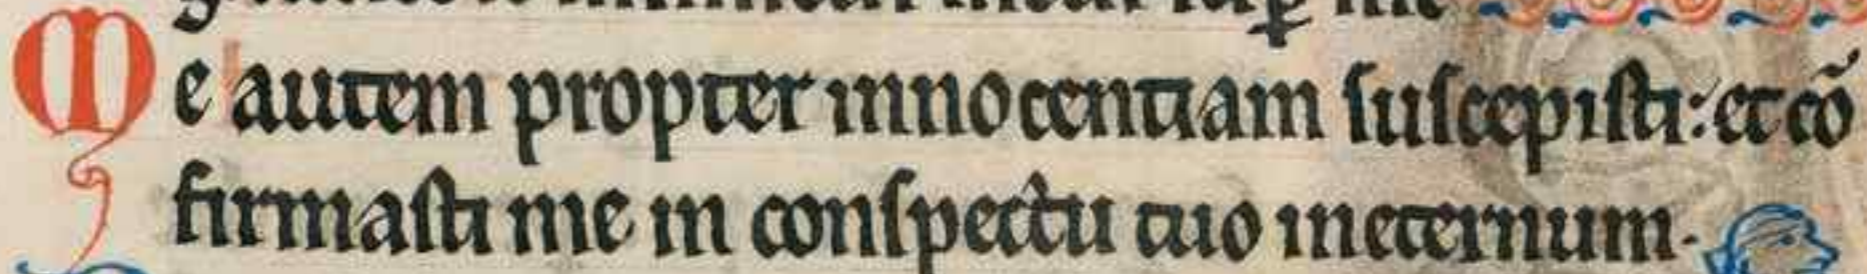 Me autem propter innocentiam suscepisti: et cō
firmasti me in conspectu tuo ineternum.